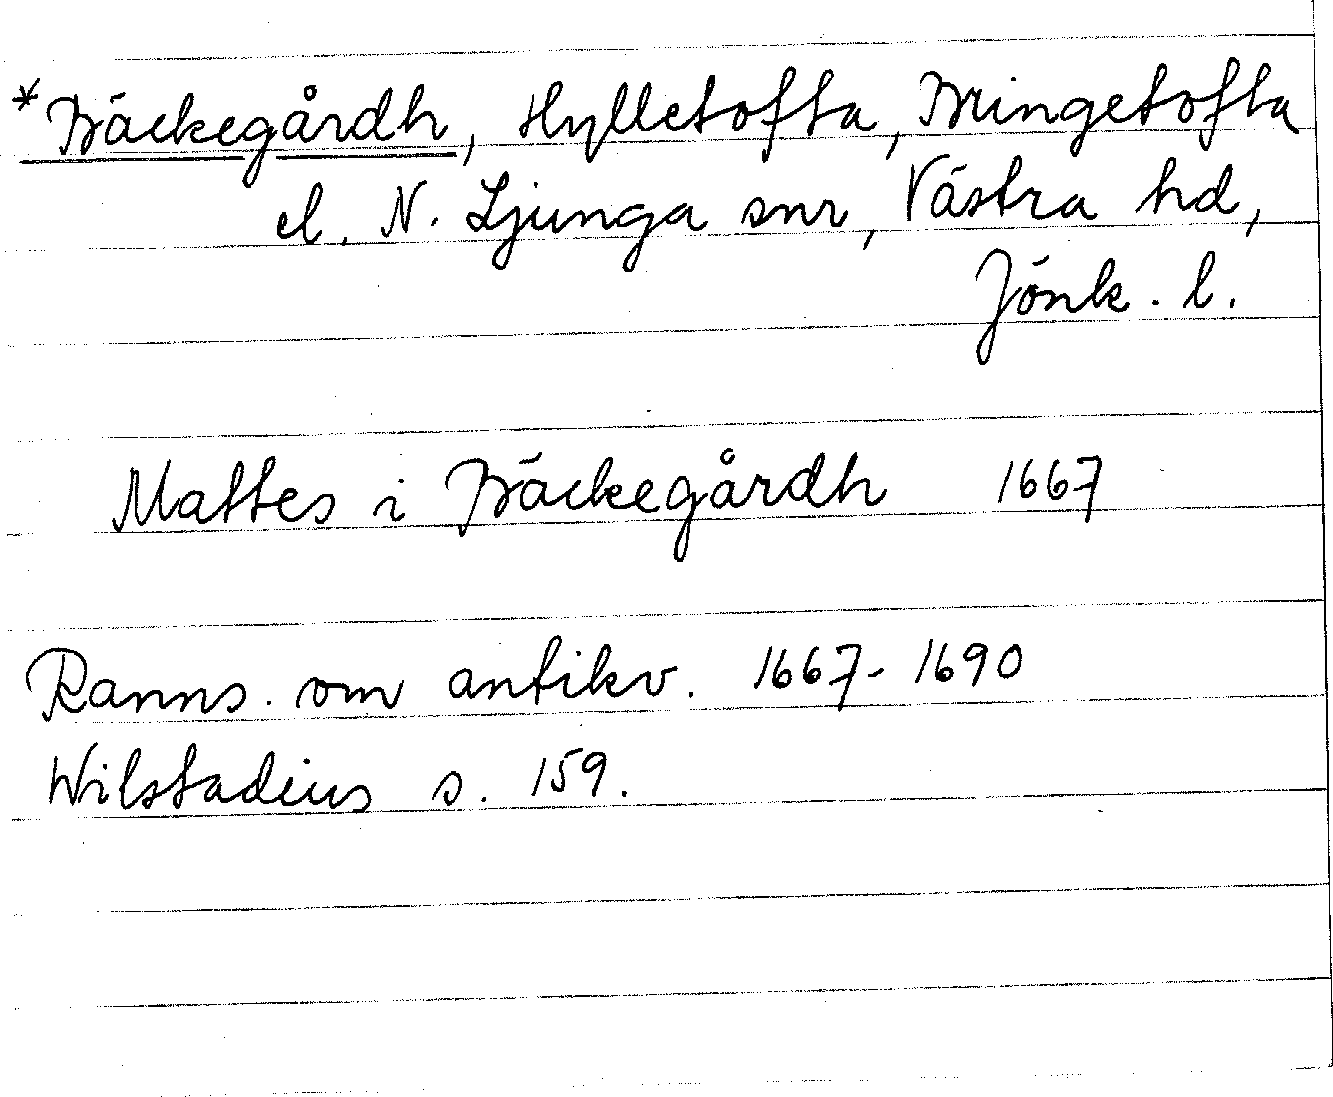 *Bäckegårdh, Hylletofta, Bringetofta
el. N. Ljunga snr, Västra hd,
Jönk. l.
Mattes i Bäckegårdh 1667
Ranns. om antikv. 1667-1690
Wilstadius s. 159.